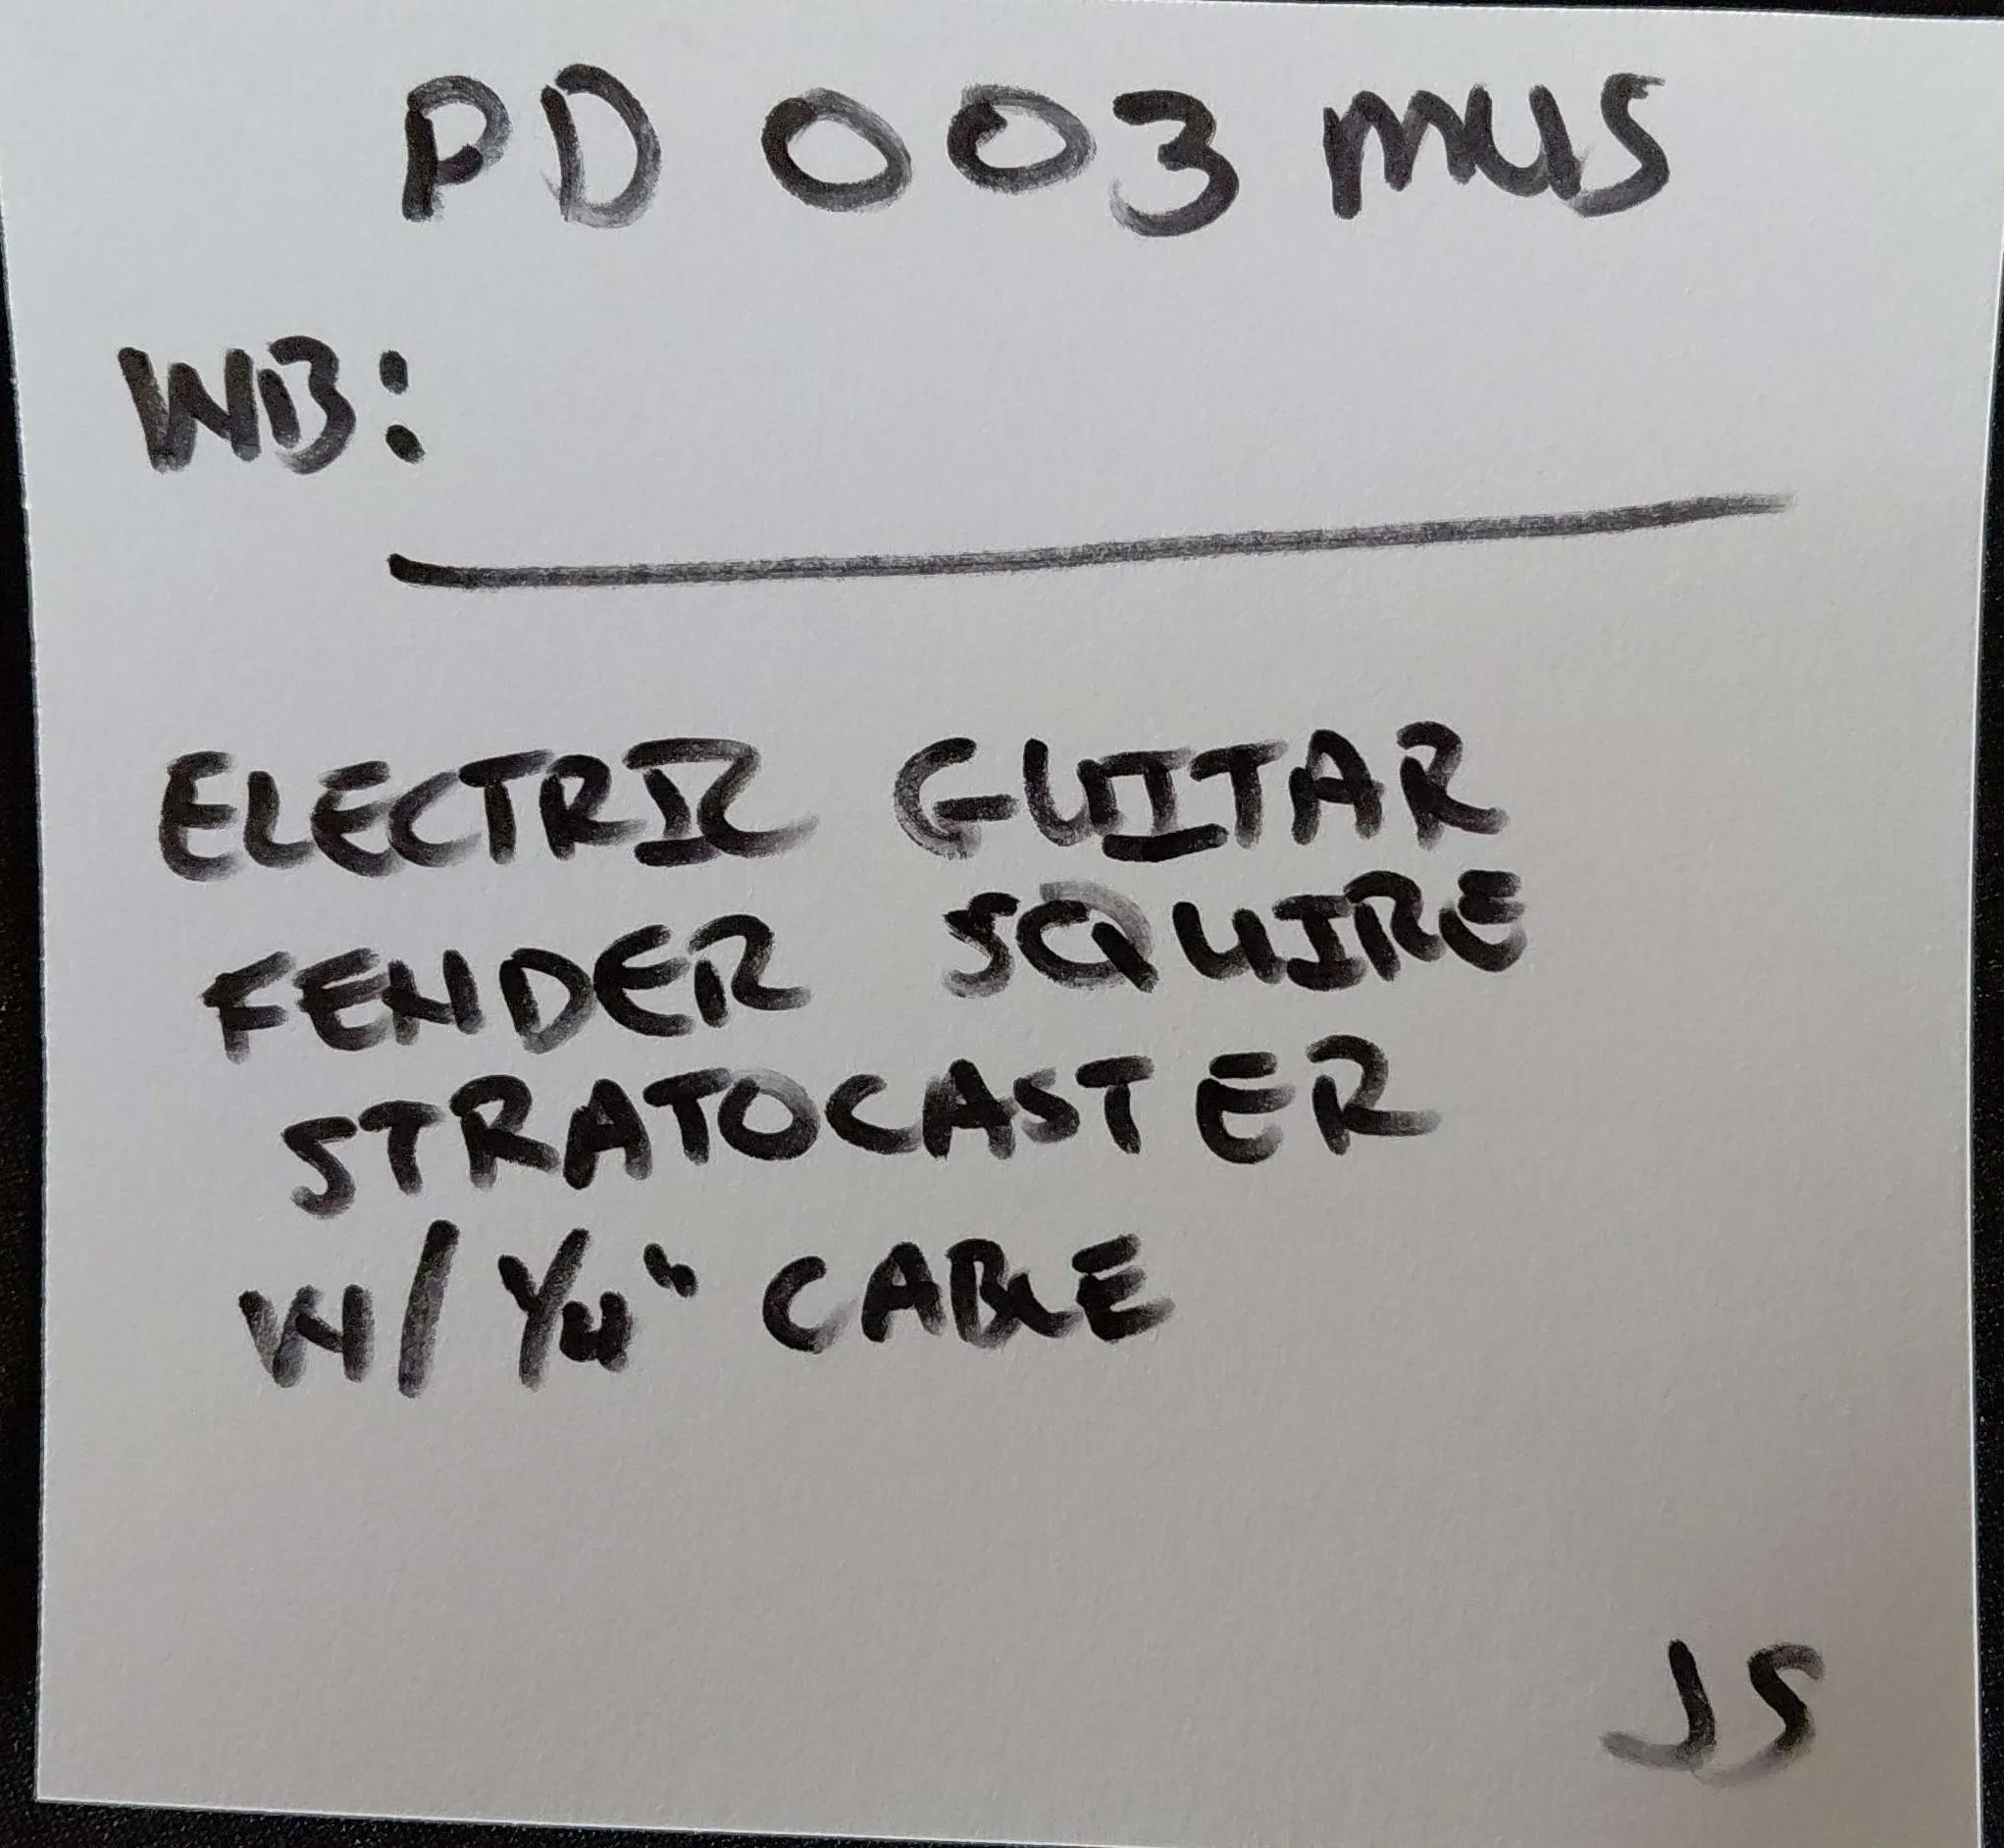 PD 003 MUS
WB:
ELECTRIC GUITAR
FENDER SQUIRE
STRATOCASTER
W/ 1/4" CABLE
JS